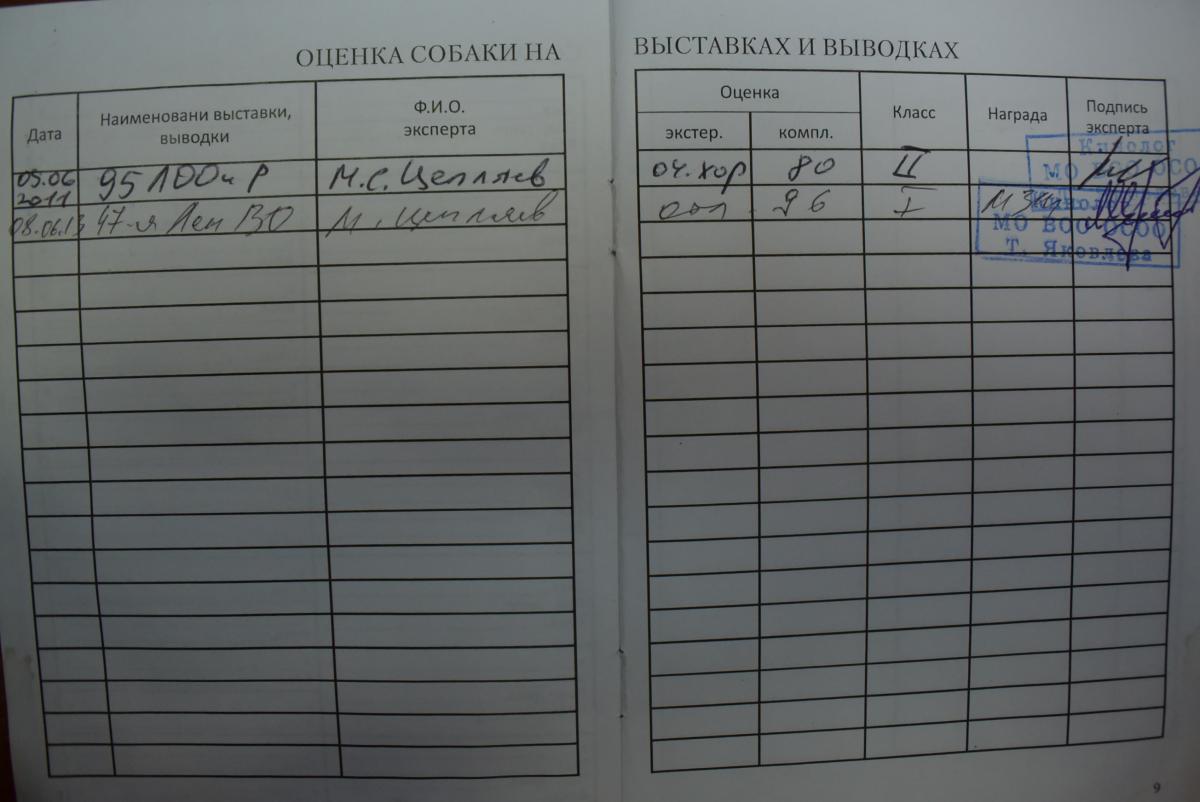 ОЦЕНКА СОБАКИ НА ВЫСТАВКАХ И ВЫВОДКАХ
Дата
Наименовани выставки,
выводки
Ф.И.О.
эксперта
Оценка
экстер.
компл.
Класс
Награда
Подпись
эксперта
05.06
2011
95 ЛООиР
М.С. Цепляев
оч.хор
80
II
08.06.13
47-я Лен ВО
М. Цепляев
отл.
96
I
Кинолог
МО ВОО ОСОО
Кинолог
МО ВОО ОСОО
Т. Яковлева
9